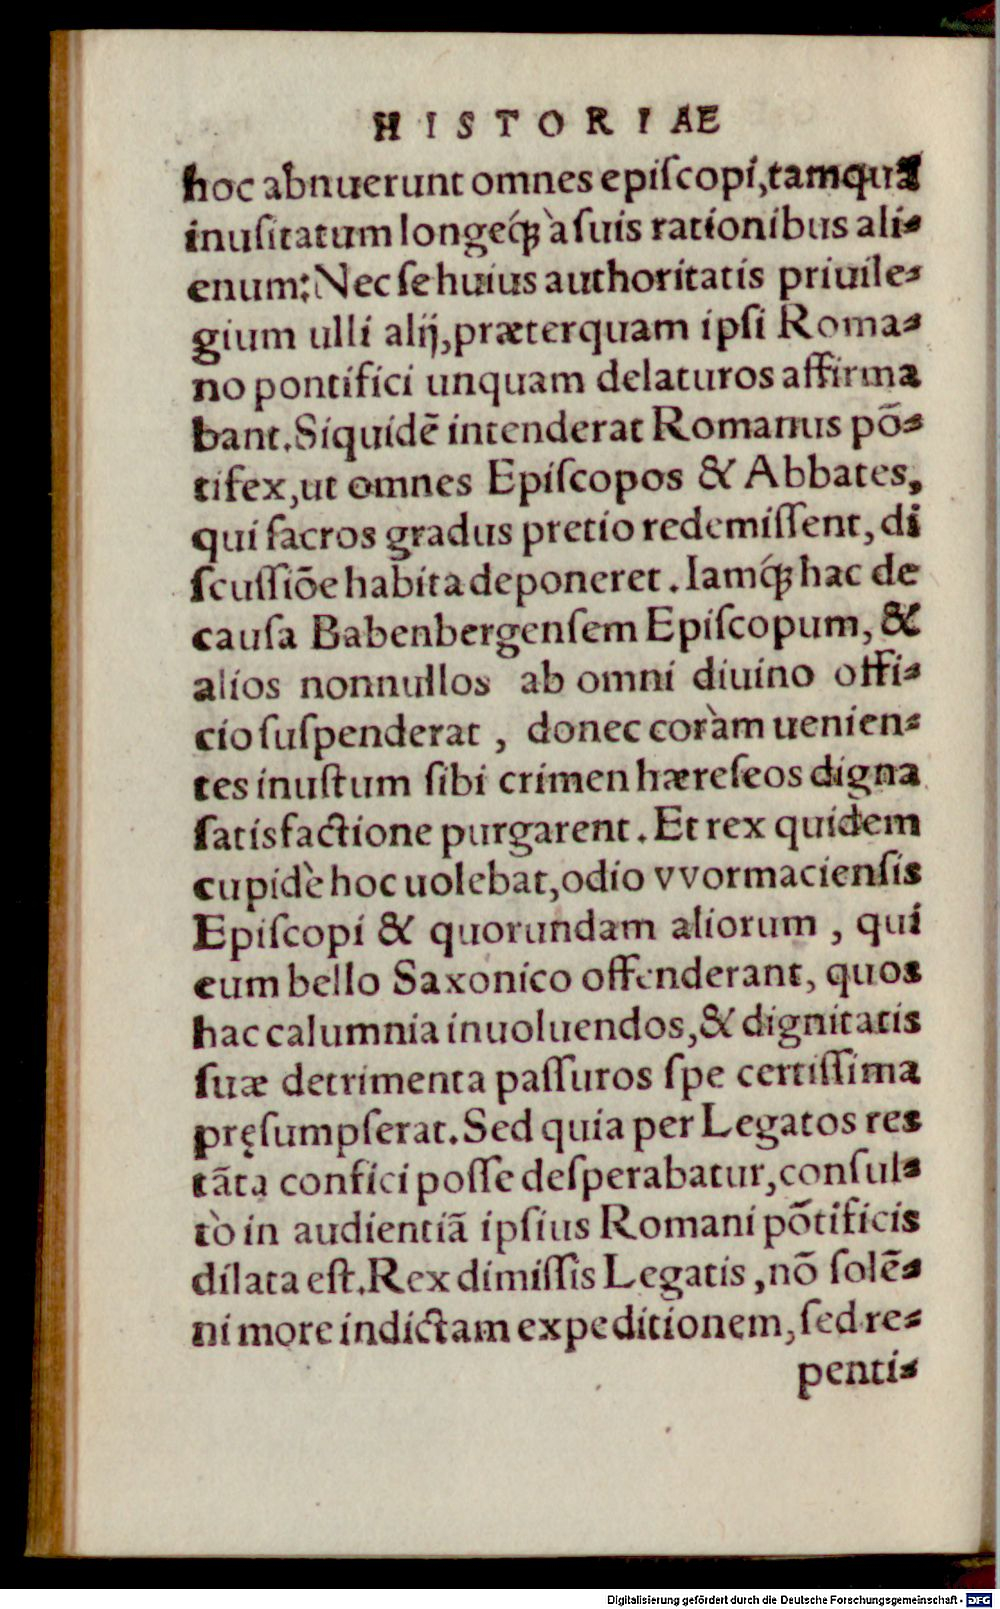 HISTORIAE
hoc abnuerunt omnes epiſcopi, tamquã
inuſitatum longeq́ꝫ à ſuis rationibus ali-
enum: Nec ſe huius authoritatis priuile-
gium ulli alij, præterquam ipſi Roma-
no pontifici unquam delaturos affirma
bant. Siquidẽ intenderat Romanus põ-
tifex, ut omnes Epiſcopos & Abbates,
qui ſacros gradus pretio redemiſſent, di
ſcuſſiõe habita deponeret. Iamq́ꝫ hac de
cauſa Babenbergenſem Epiſcopum, &
alios nonnullos ab omni diuino offi-
cio ſuſpenderat, donec coràm uenien-
tes inuſtum ſibi crimen hæreſeos digna
ſatisfactione purgarent. Et rex quidem
cupidè hoc uolebat, odio vvormacienſis
Epiſcopi & quorundam aliorum, qui
eum bello Saxonico offenderant, quos
hac calumnia inuoluendos, & dignitatis
ſuæ detrimenta paſſuros ſpe certiſſima
pręſumpſerat. Sed quia per Legatos res
tãta confici poſſe deſperabatur, conſul-
tò in audientiã ipſius Romani põtificis
dilata eſt. Rex dimiſſis Legatis, nõ ſolẽ-
ni more indictam expeditionem, ſed re-
penti-
Digitalisierung gefördert durch die Deutsche Forschungsgemeinschaft - DFG